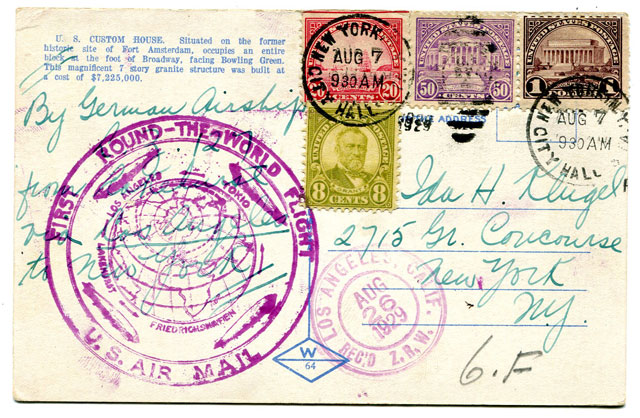 U. S. CUSTOM HOUSE. Situated on the former
historic site of Fort Amsterdam, occupies an entire
block at the foot of Broadway, facing Bowling Green.
This magnificent 7 story granite structure was built at
a cost of $7,225,000.
NEW YORK, N.Y.
AUG 7
9 30 AM
CITY HALL
1929
20
CENTS
50 CENTS 50
UNITED STATES POSTAGE
1
8 CENTS 8
GRANT
NEW YORK, N.Y.
AUG 7
9 30 AM
CITY HALL
ADDRESS
By German Airship
L.Z. 127
from Lakehurst
via Los Angeles
to New York
FIRST ROUND-THE-WORLD FLIGHT
U.S. AIR MAIL
LOS ANGELES
TOKIO
LAKEHURST
FRIEDRICHSHAFEN
Ida H. Klugel
2715 Gr. Concourse
New York
N.Y.
LOS ANGELES, CALIF.
AUG
26
1929
REC'D Z.R.W.
W
64
6.F